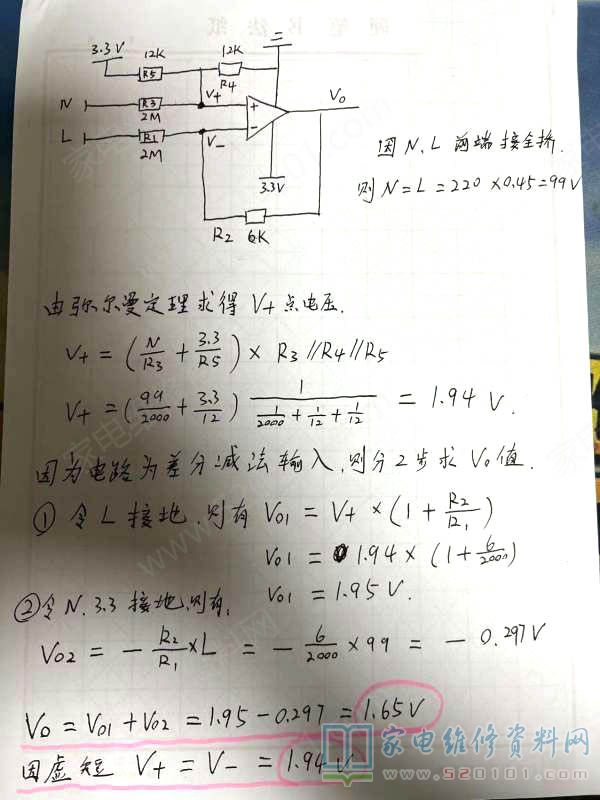 3.3V
12K
R5
12K
R4
V+
N
R3
2M
L
R1
2M
V-
+
-
V0
3.3V
R2 6K
因N、L两端接全桥.
则N=L=220×0.45=99V
由弥尔曼定理求得V+点电压.
V+ = (N/R3 + 3.3/R5) × R3//R4//R5
V+ = (99/2000 + 3.3/12) 1/(1/2000 + 1/12 + 1/12) = 1.94 V.
因为电路为差分减法输入,则分2步求V0值.
① 令L接地,则有 V01 = V+ × (1 + R2/R1)
V01 = 1.94 × (1 + 6/2000)
V01 = 1.95 V.
② 令N、3.3接地,则有,
V02 = - R2/R1 × L = - 6/2000 × 99 = - 0.297V
V0 = V01 + V02 = 1.95 - 0.297 = 1.65V
因虚短 V+ = V- = 1.94V
家电维修资料网
www.520101.com